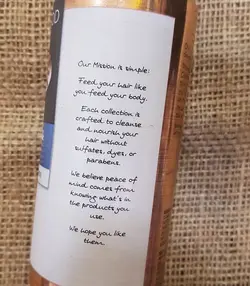 Our Mission is simple:
Feed your hair like
you feed your body.
Each collection is
crafted to cleanse
and nourish your
hair without
sulfates, dyes, or
parabens.
We believe peace of
mind comes from
knowing what's in
the products you
use.
We hope you like
them.